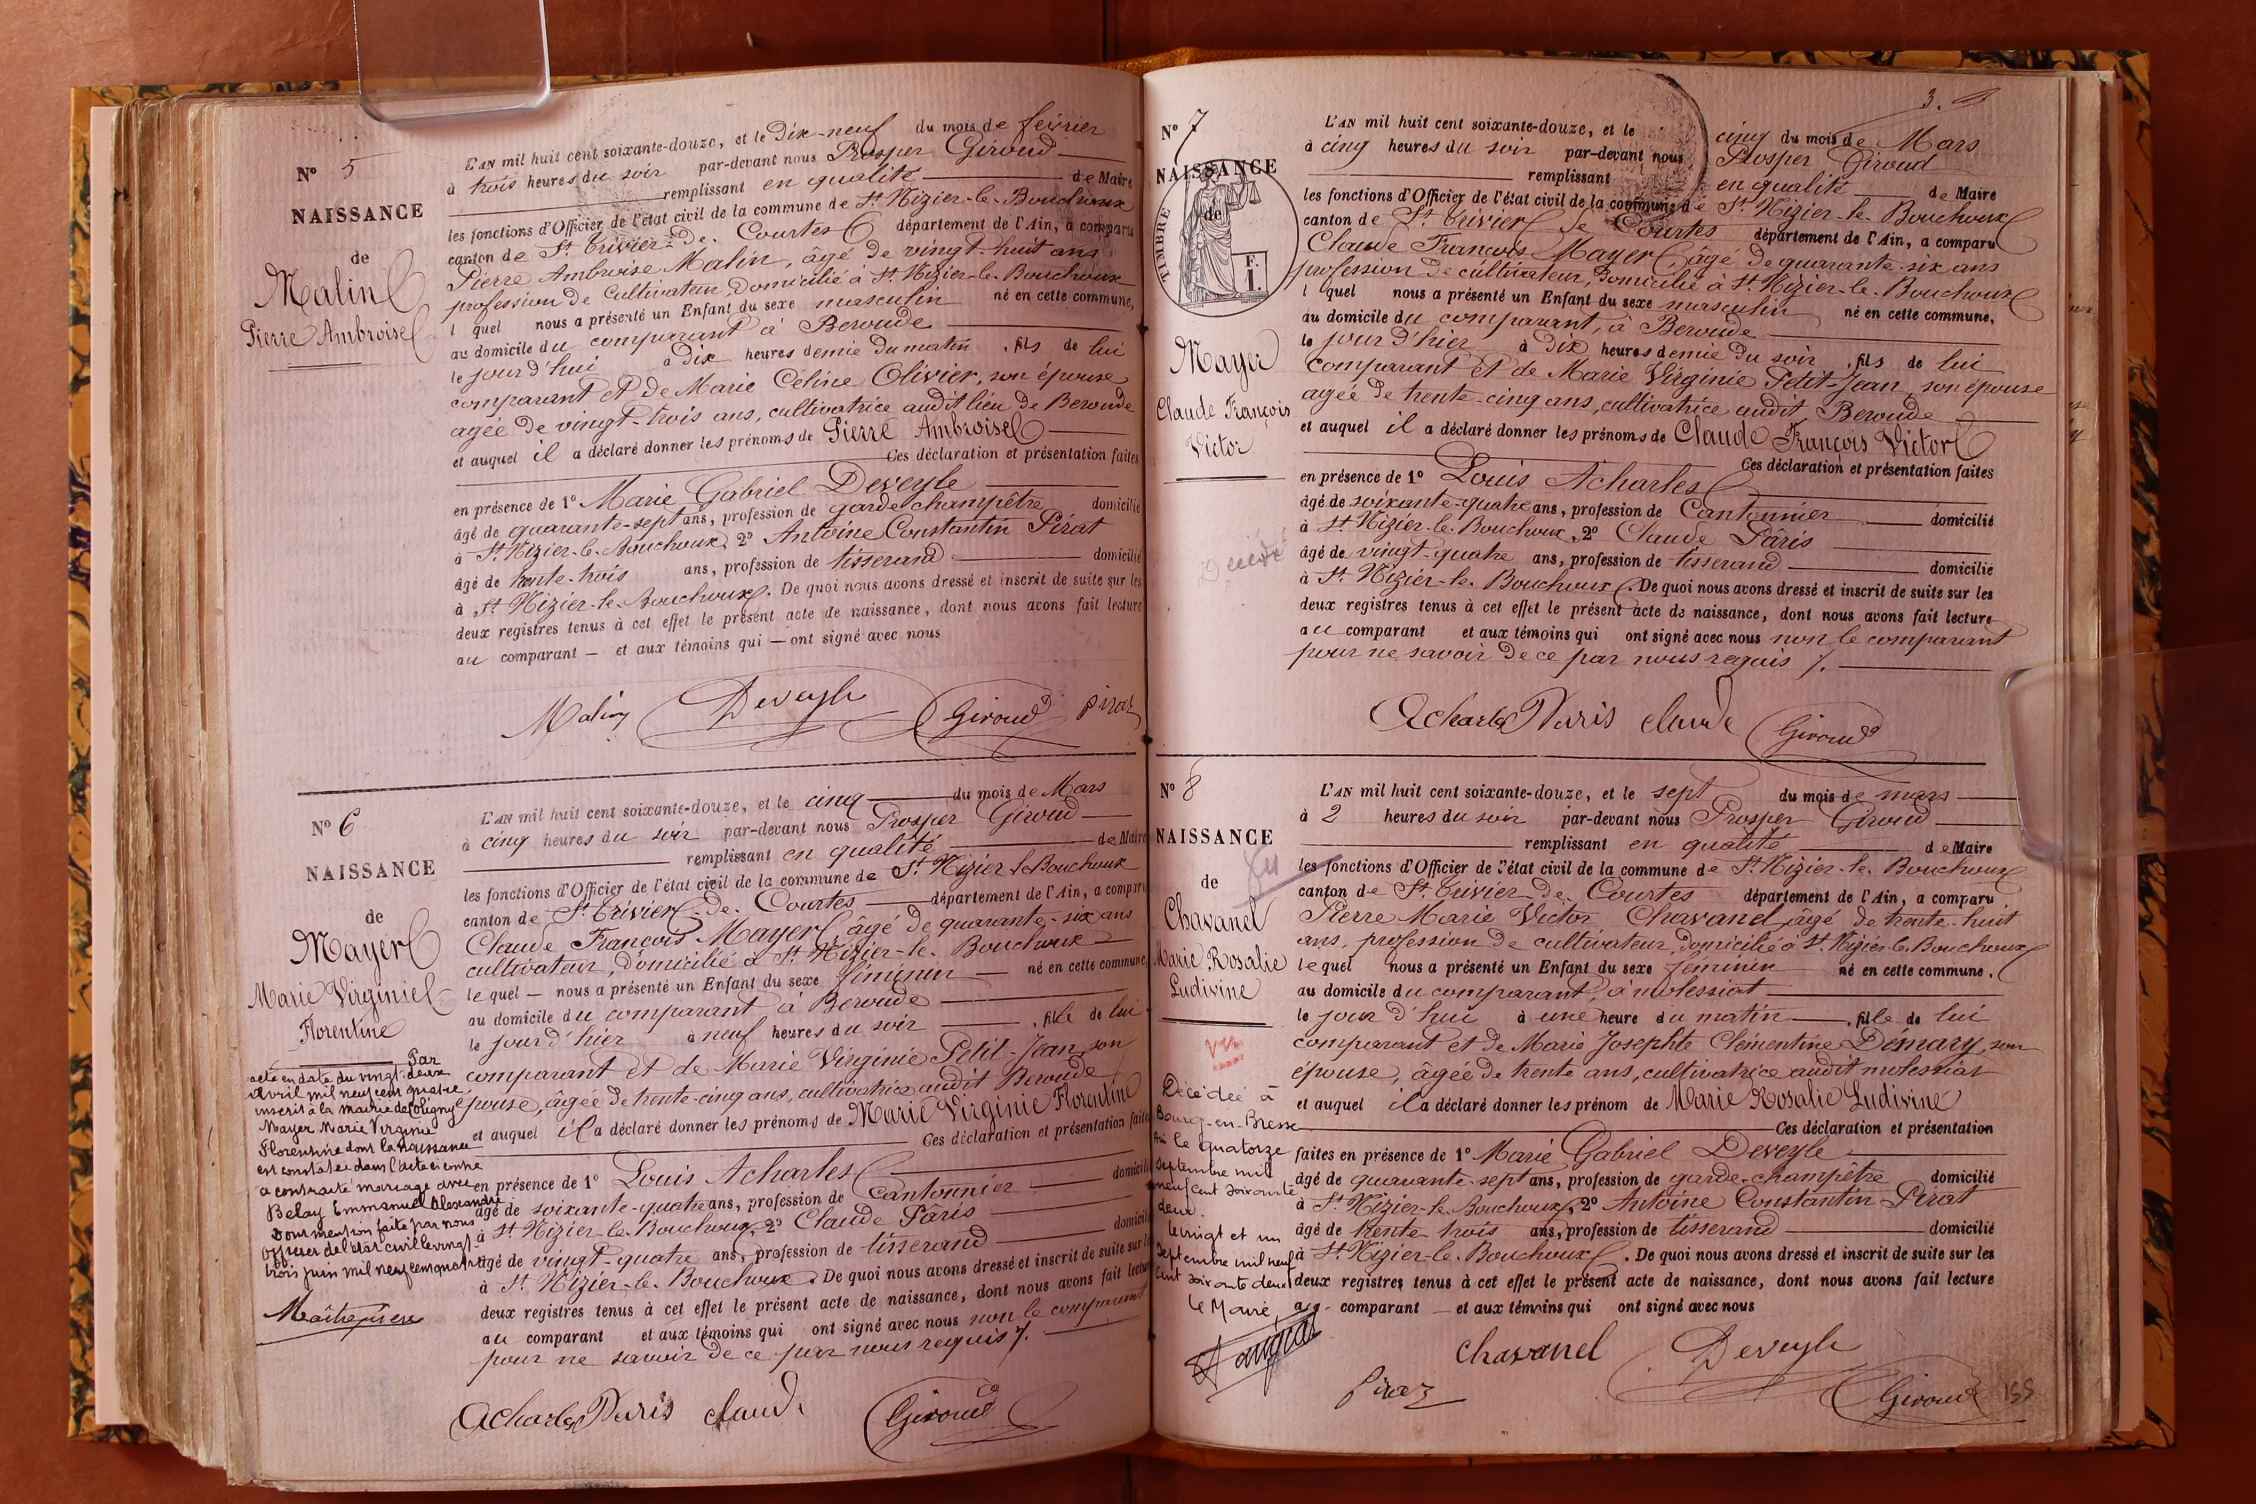 N° 5
NAISSANCE
de
Malin
Pierre Ambroise
L'AN mil huit cent soixante-douze, et le Dix-neuf du mois de février
à trois heures du soir par-devant nous Prosper Giroud
remplissant en qualité de Maire
les fonctions d'Officier de l'état civil de la commune de St Nizier-le-Bouchoux
canton de St Trivier-de-Courtes département de l'Ain, a comparu
Pierre Ambroise Malin, âgé de vingt-huit ans
profession de Cultivateur, domicilié à St Nizier-le-Bouchoux
lequel nous a présenté un Enfant du sexe masculin né en cette commune,
au domicile du comparant à Beroude
le jour d'hui à Dix heures demie du matin, fils de lui
comparant et de Marie Céline Olivier, son épouse
agée de vingt-trois ans, cultivatrice audit lieu de Beroude
et auquel il a déclaré donner les prénoms de Pierre Ambroise
Ces déclaration et présentation faites
en présence de 1° Marie Gabriel Deveyle
âgé de quarante-sept ans, profession de garde champêtre domicilié
à St Nizier-le-Bouchoux, 2° Antoine Constantin Pirat
âgé de trente-trois ans, profession de tisserand domicilié
à St Nizier-le-Bouchoux. De quoi nous avons dressé et inscrit de suite sur les
deux registres tenus à cet effet le présent acte de naissance, dont nous avons fait lecture
au comparant — et aux témoins qui — ont signé avec nous
Malin Deveyle Giroud Pirat
N° 6
NAISSANCE
de
Mayer
Marie Virginie
Florentine
Par
acte en date du vingt-deux
avril mil neuf cent quatre
inscrit à la mairie de Coligny
Mayer Marie Virginie
Florentine dont la naissance
est constatée dans l'acte ci contre
a contracté mariage avec
Belay Emmanuel Alexandre
Dont mention faite par nous
officier de l'état civil le vingt-
trois juin mil neuf cent quatre
Maîtrepierre
L'AN mil huit cent soixante-douze, et le cinq du mois de Mars
à cinq heures du soir par-devant nous Prosper Giroud
remplissant en qualité de Maire
les fonctions d'Officier de l'état civil de la commune de St Nizier-le-Bouchoux
canton de St Trivier-de-Courtes département de l'Ain, a comparu
Claude François Mayer âgé de quarante-six ans
cultivateur, domicilié à St Nizier-le-Bouchoux
lequel — nous a présenté un Enfant du sexe féminin né en cette commune,
au domicile du comparant à Beroude
le jour d'hier à neuf heures du soir, fille de lui
comparant et de Marie Virginie Petit-Jean, son
épouse, âgée de trente-cinq ans, cultivatrice audit Beroude
et auquel il a déclaré donner les prénoms de Marie Virginie Florentine
Ces déclaration et présentation faites
en présence de 1° Louis Acharles domicilié
âgé de soixante-quatre ans, profession de Cantonnier
à St Nizier-le-Bouchoux, 2° Claude Pâris
âgé de vingt-quatre ans, profession de tisserand domicilié
à St Nizier-le-Bouchoux. De quoi nous avons dressé et inscrit de suite sur les
deux registres tenus à cet effet le présent acte de naissance, dont nous avons fait lecture
au comparant et aux témoins qui ont signé avec nous non le comparant
pour ne savoir de ce par nous requis /.
Acharles Paris claude Giroud
3.
N° 7
NAISSANCE
de
TIMBRE
F.
1.
Mayer
Claude François
Victor
Décédé
L'AN mil huit cent soixante-douze, et le cinq du mois de Mars
à cinq heures du soir par-devant nous Prosper Giroud
remplissant en qualité de Maire
les fonctions d'Officier de l'état civil de la commune de St Nizier-le-Bouchoux
canton de St Trivier de Courtes département de l'Ain, a comparu
Claude François Mayer, âgé de quarante-six ans
profession de cultivateur, domicilié à St Nizier-le-Bouchoux
lquel nous a présenté un Enfant du sexe masculin né en cette commune,
au domicile du comparant, à Beroude
le jour d'hier à Dix heures demie du soir, fils de lui
comparant et de Marie Virginie Petit-Jean, son épouse
agée de trente-cinq ans, cultivatrice audit Beroude
et auquel il a déclaré donner les prénoms de Claude François Victor
Ces déclaration et présentation faites
en présence de 1° Louis Acharles
âgé de soixante-quatre ans, profession de Cantonnier domicilié
à St Nizier-le-Bouchoux, 2° Claude Pâris
âgé de vingt-quatre ans, profession de tisserand domicilié
à St Nizier-le-Bouchoux. De quoi nous avons dressé et inscrit de suite sur les
deux registres tenus à cet effet le présent acte de naissance, dont nous avons fait lecture
au comparant et aux témoins qui ont signé avec nous non le comparant
pour ne savoir de ce par nous requis /.
Acharles Paris claude Giroud
N° 8
NAISSANCE
de
Chavanel
Marie Rosalie
Ludivine
Décédée à
Bourg-en-Bresse
Ain le quatorze
septembre mil
neuf cent soixante
deux.
le vingt et un
septembre mil neuf
cent soixante deux
Le Maire,
L'AN mil huit cent soixante-douze, et le sept du mois de mars
à 2 heures du soir par-devant nous Prosper Giroud
remplissant en qualité de Maire
les fonctions d'Officier de l'état civil de la commune de St Nizier-le-Bouchoux
canton de St Trivier-de-Courtes département de l'Ain, a comparu
Pierre Marie Victor Chavanel, âgé de trente-huit
ans, profession de cultivateur, domicilié à St Nizier-le-Bouchoux
lequel nous a présenté un Enfant du sexe féminin né en cette commune,
au domicile du comparant, à molessiat
le jour d'hui à une heure du matin, fille de lui
comparant et de Marie Josephte Clémentine Démary, son
épouse, âgée de trente ans, cultivatrice audit molessiat
et auquel il a déclaré donner les prénom de Marie Rosalie Ludivine
Ces déclaration et présentation
faites en présence de 1° Marie Gabriel Deveyle
âgé de quarante-sept ans, profession de garde-champêtre domicilié
à St Nizier-le-Bouchoux, 2° Antoine Constantin Pirat
âgé de trente-trois ans, profession de tisserand domicilié
à St Nizier-le-Bouchoux. De quoi nous avons dressé et inscrit de suite sur les
deux registres tenus à cet effet le présent acte de naissance, dont nous avons fait lecture
au comparant — et aux témoins qui ont signé avec nous
Chavanel Deveyle
Pirat Giroud 155